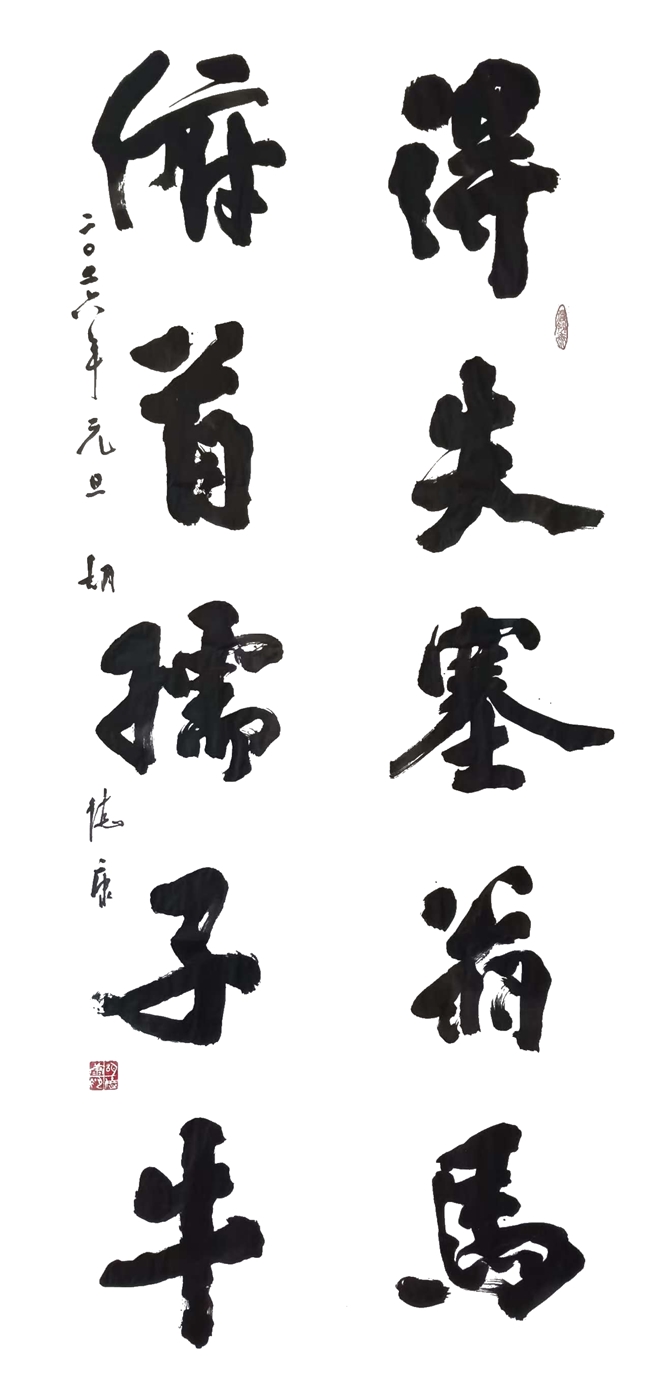 得失塞翁馬
俯首孺子牛
二〇二六年元旦 胡德康